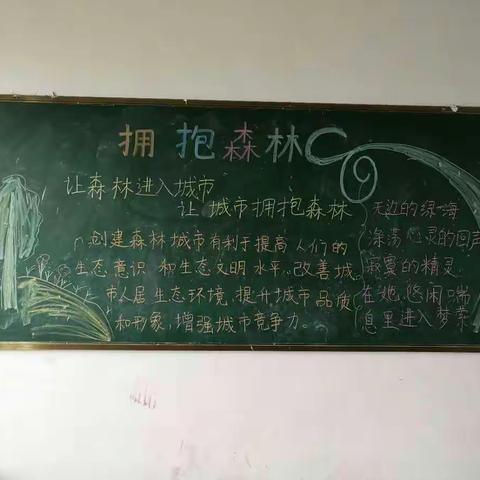 拥抱森林
让森林进入城市
让城市拥抱森林
创建森林城市有利于提高人们的
生态意识和生态文明水平,改善城
市人居生态环境,提升城市品质
和形象,增强城市竞争力。
无边的绿海
涤荡心灵的回声
寂寞的精灵
在她悠闲喘
息里进入梦